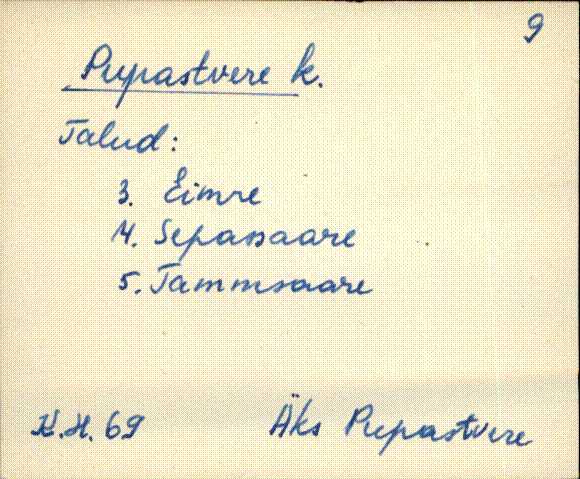 9
Pupastvere k.
Talud:
3. Eimre
4. Sepassaare
5. Tammsaare
K.H. 69 Äks Pupastvere